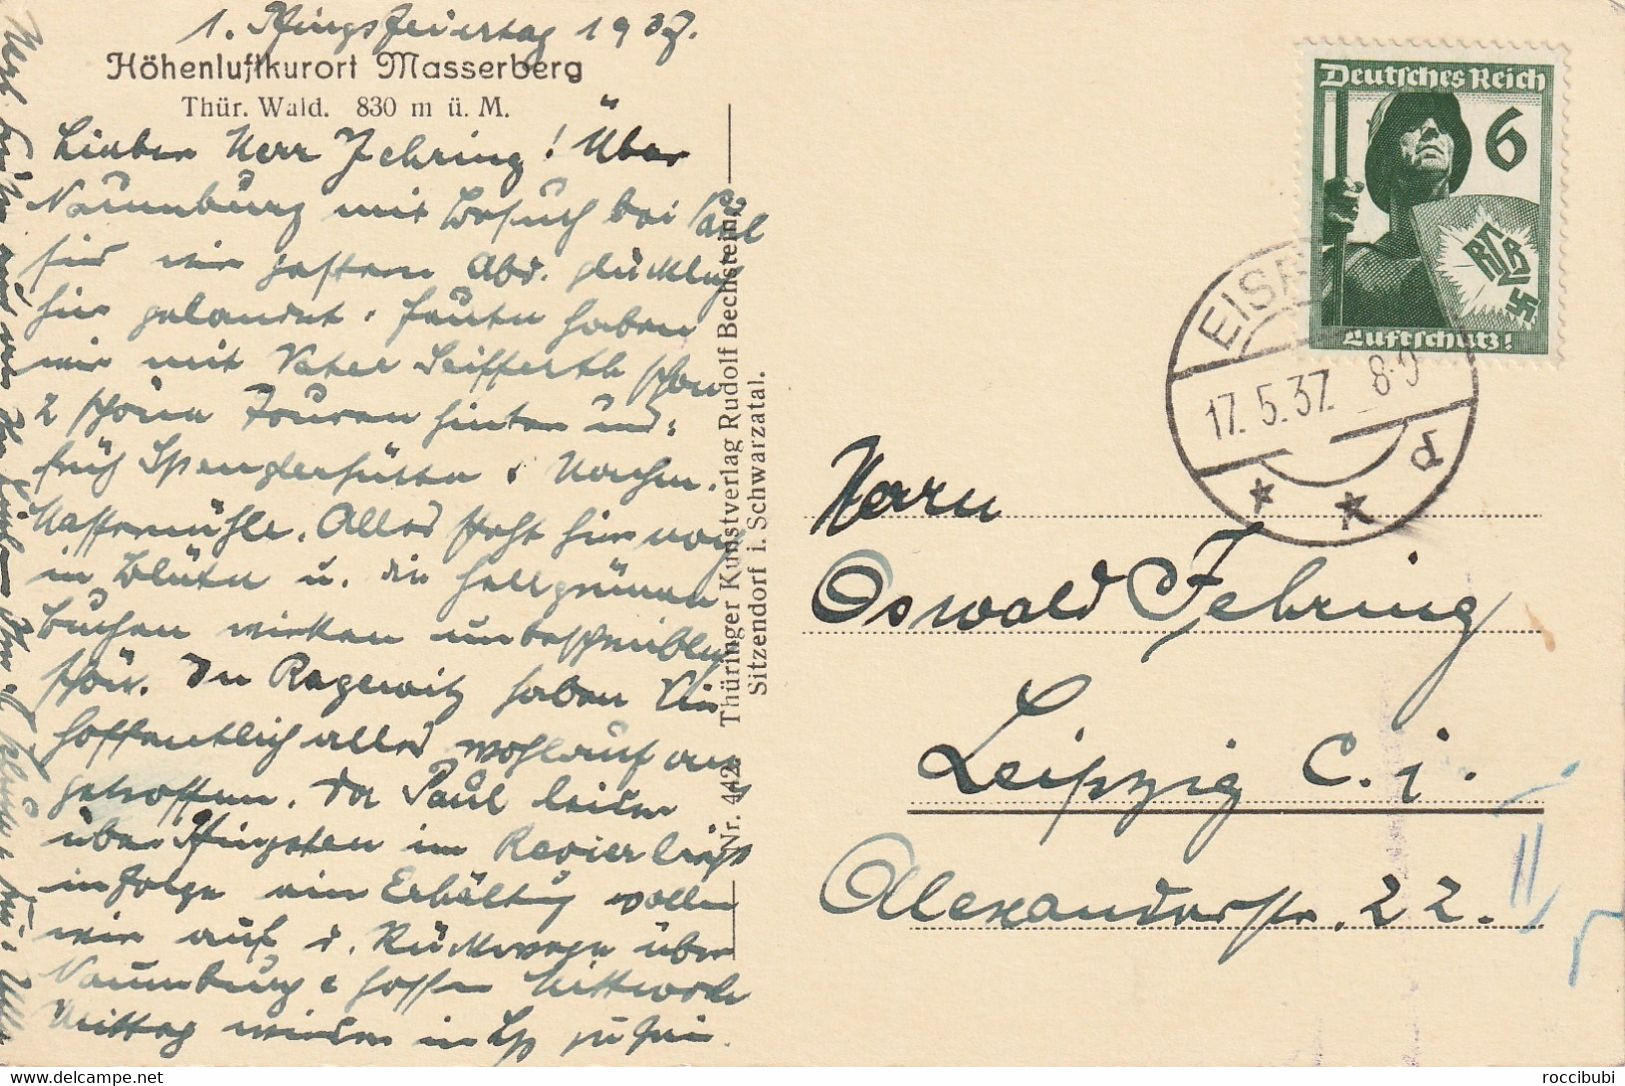 1. Pfingstfeiertag 1937.
Höhenluftkurort Masserberg
Thür. Wald. 830 m ü. M.
Lieber Herr Fehring! Über
Naumburg mit Besuch bei Paul
sind wir gestern Abd. glücklich
hier gelandet. Heute haben
wir mit Vater Seifferth schon
2 schöne Touren hinter uns:
früh Spenglershütte, Nachm.
Massemühle. Alles steht hier noch
in Blüte u. die hellgrünen
Buchen wirken unbeschreiblich
schön. In Ragewitz haben Sie
hoffentlich alles wohlauf an-
getroffen. Da Paul leider
über Pfingsten im Revier liegt
infolge ein Erkältung wollen
wir auf d. Rückwege über
Naumburg & hoffen Mittwoch
Mittag wieder in Lp zu sein.
Nr. 442 Thüringer Kunstverlag Rudolf Bechstein,
Sitzendorf i. Schwarzatal.
Deutsches Reich
6
RLB
Luftschutz!
EISF
17.5.37. 8-9
d
Herrn
Oswald Fehring
Leipzig C. 1.
Alexanderstr. 22.
roccibubi